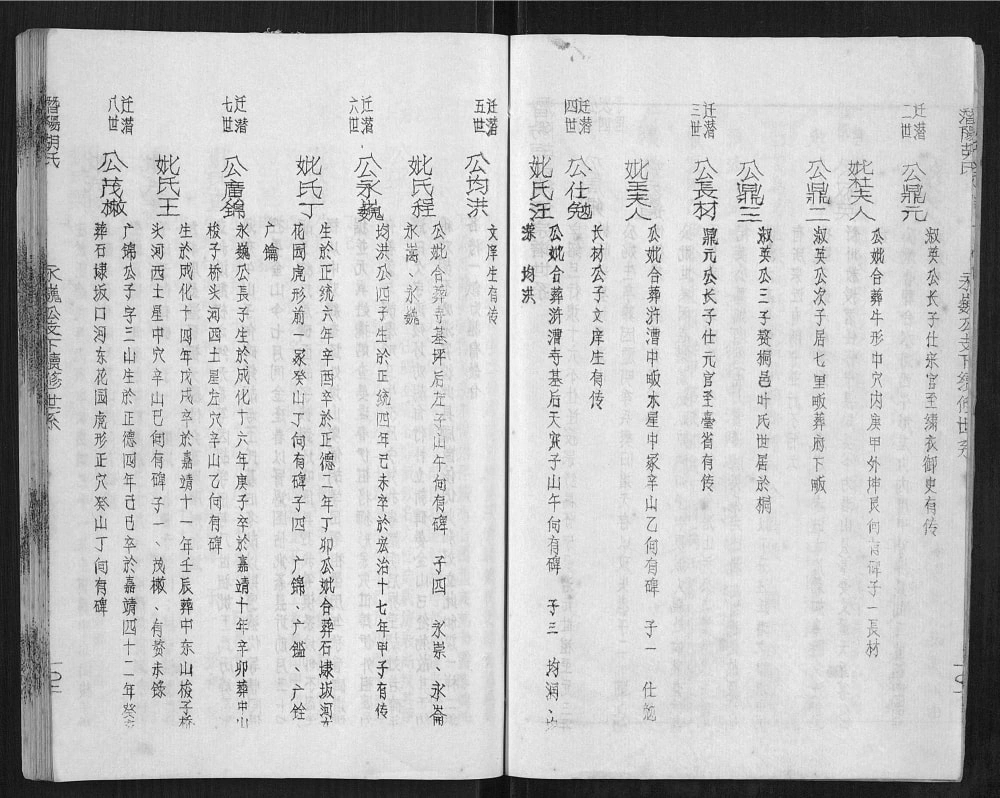 潛陽胡氏
永巍公支下續修世系
一〇二
迁潜二世
公鼎元
淑英公长子仕宋官至绣衣御史有传
妣杜夫人
公妣合葬牛形中穴内庚甲外坤艮向有碑子一長材
公鼎二
淑英公次子居七里畈葬府下畈
公鼎三
淑英公三子赘桐邑叶氏世居於桐
迁潜三世
公長材
鼎元公长子仕元官至臺省有传
妣王夫人
公妣合葬浒漕中畈水星中冢辛山乙向有碑 子一 仕勉
迁潜四世
公仕勉
长材公子文庠生有传
妣氏汪
公妣合葬浒漕寺基后天窝子山午向有碑 子三 均润、均
均洪
迁潜五世
公均洪
文庠生有传
妣氏程
公妣合葬寺基坪后左子山午向有碑 子四 永崇、永崙
永巍
迁潜六世
公永巍
均洪公四子生於正统四年己未卒於宏治十七年甲子有传
妣氏丁
生於正统六年辛酉卒於正德二年丁卯公妣合葬石埭坂河东
花園虎形前一冢癸山丁向有碑子四 广锦、广鑑、广铨
广鑰
迁潜七世
公廣錦
永巍公長子生於成化十六年庚子卒於嘉靖十年辛卯葬中山
梭子桥头河西土星左穴辛山乙向有碑
妣氏王
生於成化十四年戊戌卒於嘉靖十一年壬辰葬中东山梭子桥
头河西土星中穴辛山乙向有碑子一、茂橄、有赞未錄
迁潜八世
公茂橄
广锦公子字三山生於正德四年己巳卒於嘉靖四十二年癸亥
葬石埭坂口河东花園虎形正穴癸山丁向有碑
潛陽胡氏
永巍公支下續修世系
一〇三